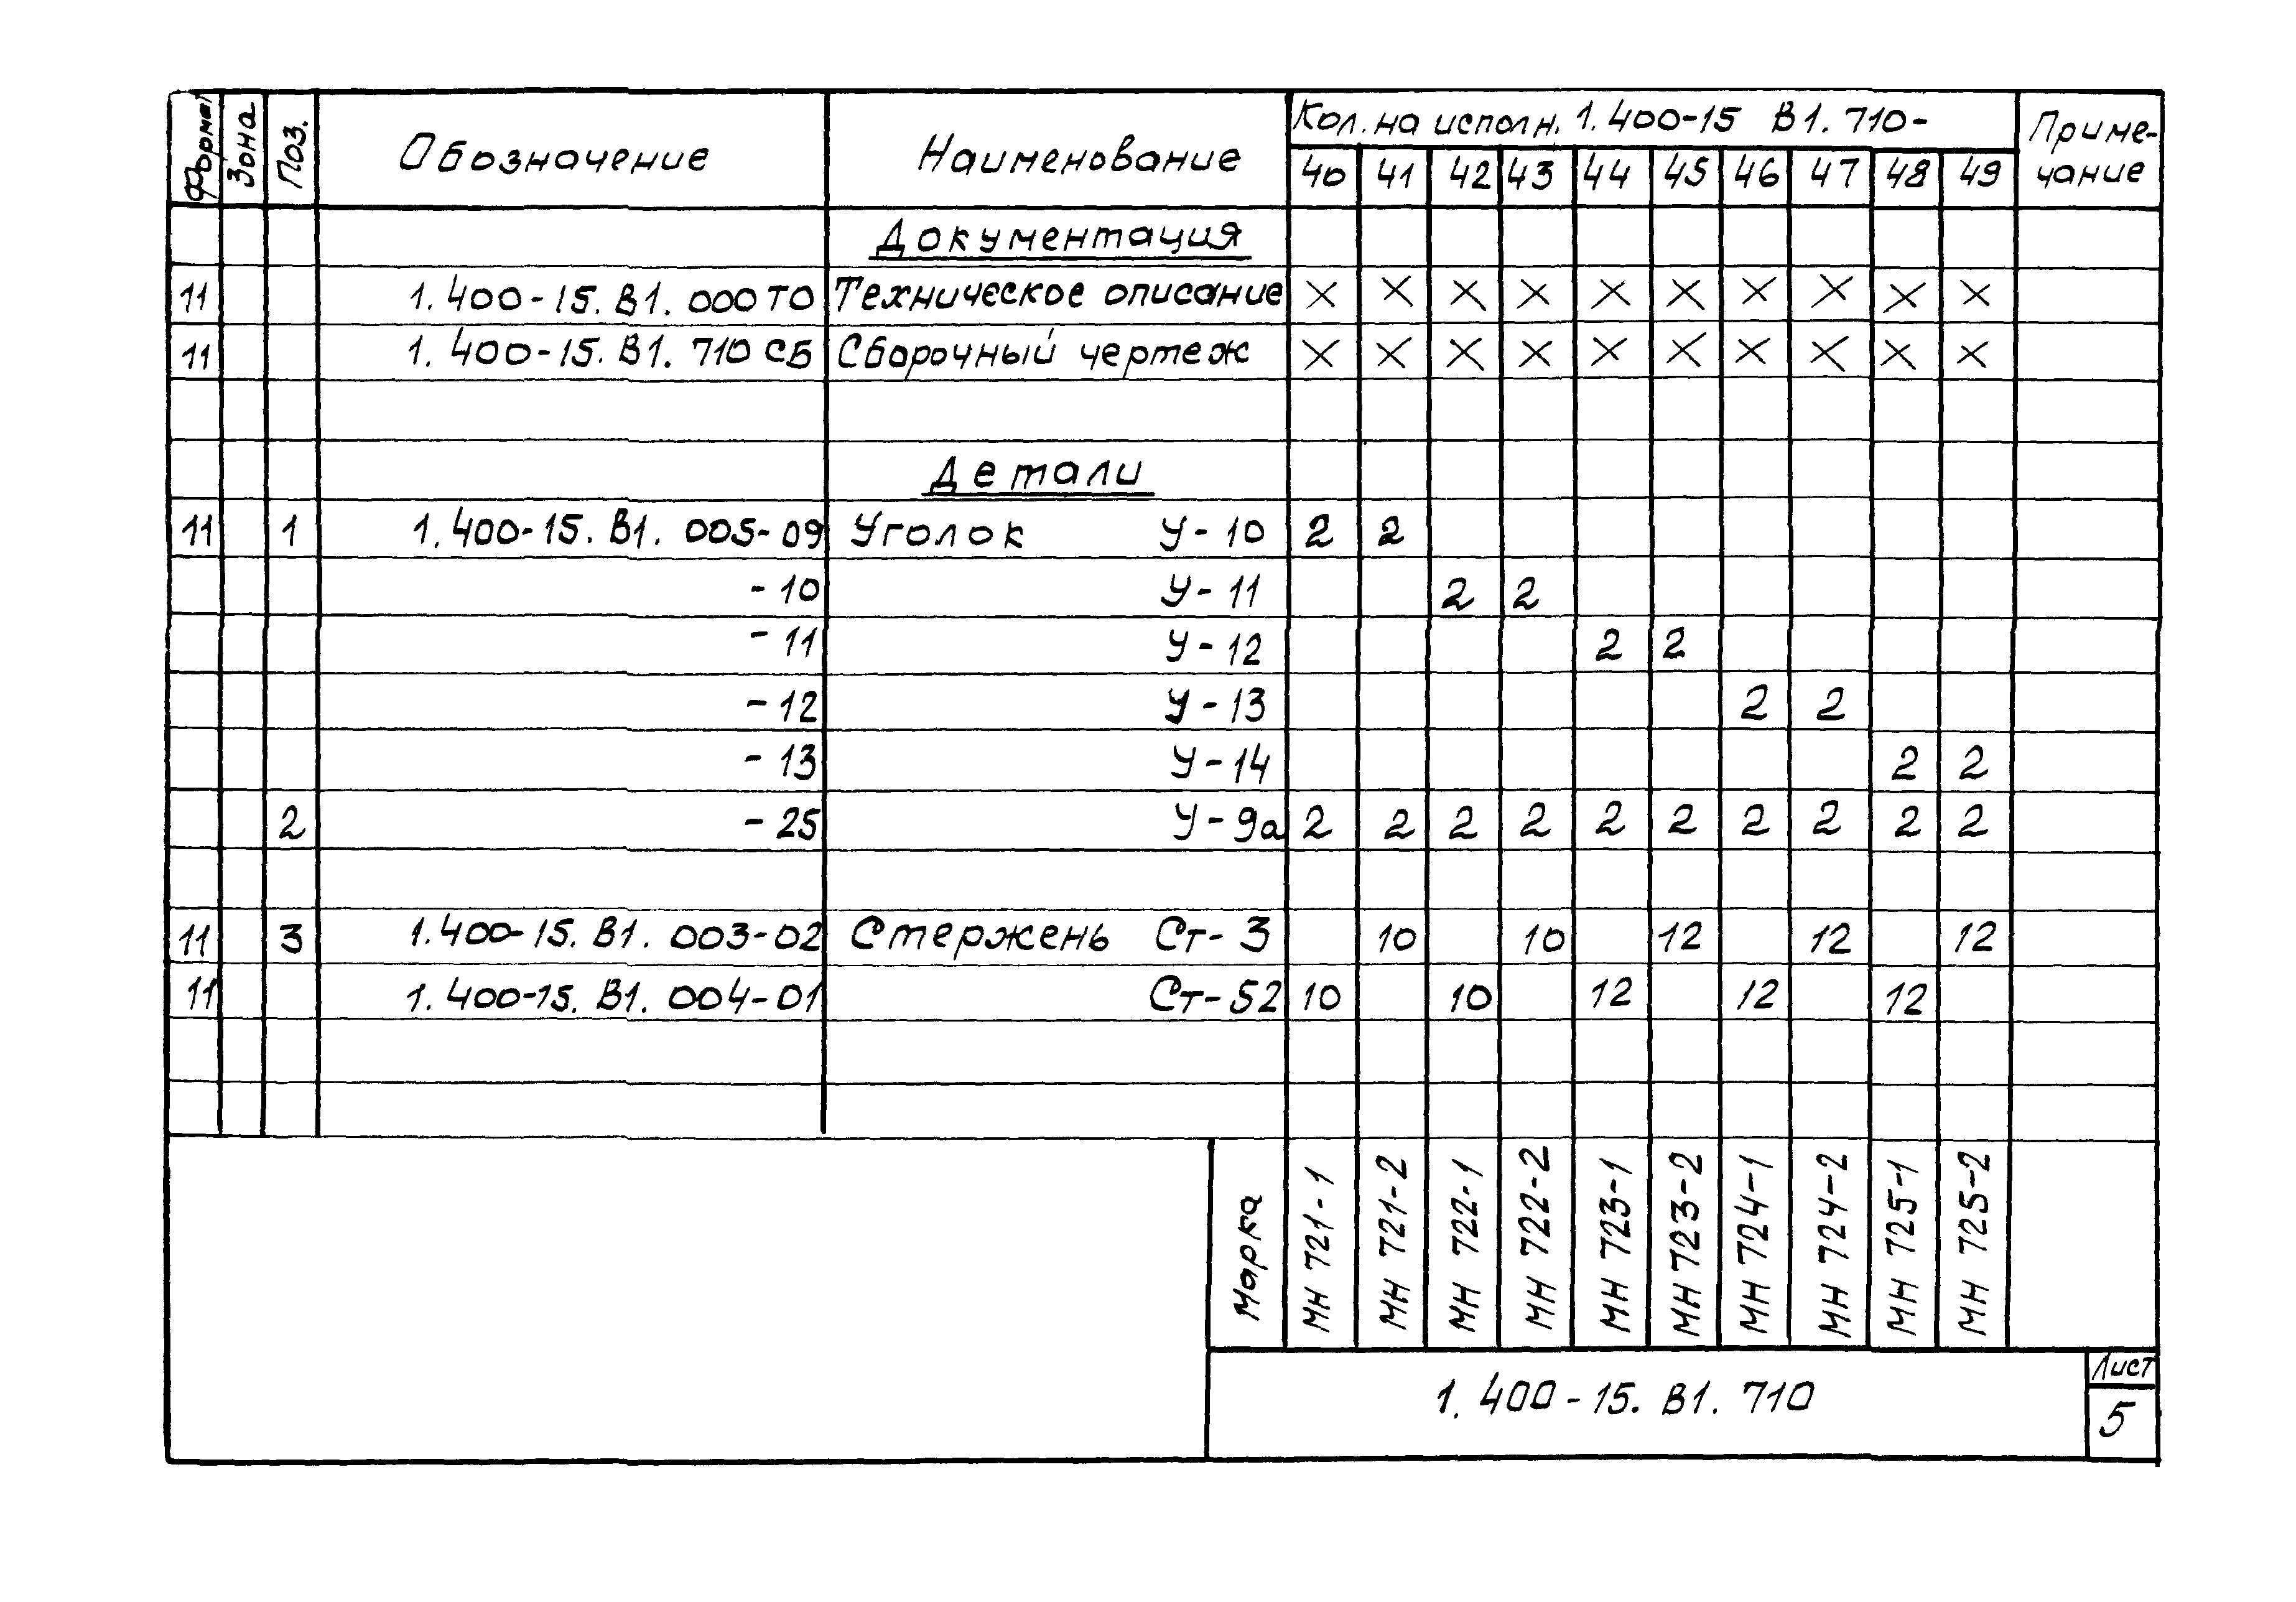 Формат Зона Поз. Обозначение Наименование Кол. на исполн. 1.400-15 В1.710- Приме-
чание
40 41 42 43 44 45 46 47 48 49
Документация
11 1.400-15.В1.000ТО Техническое описание X X X X X X X X X X
11 1.400-15.В1.710СБ Сборочный чертеж X X X X X X X X X X
Детали
11 1 1.400-15.В1.005-09 Уголок У-10 2 2
-10 У-11 2 2
-11 У-12 2 2
-12 У-13 2 2
-13 У-14 2 2
2 -25 У-9а 2 2 2 2 2 2 2 2 2 2
11 3 1.400-15.В1.003-02 Стержень Ст-3 10 10 12 12 12
11 1.400-15.В1.004-01 Ст-52 10 10 12 12 12
Марка МН 721-1 МН 721-2 МН 722-1 МН 722-2 МН 723-1 МН 723-2 МН 724-1 МН 724-2 МН 725-1 МН 725-2
1.400-15.В1.710
Лист
5